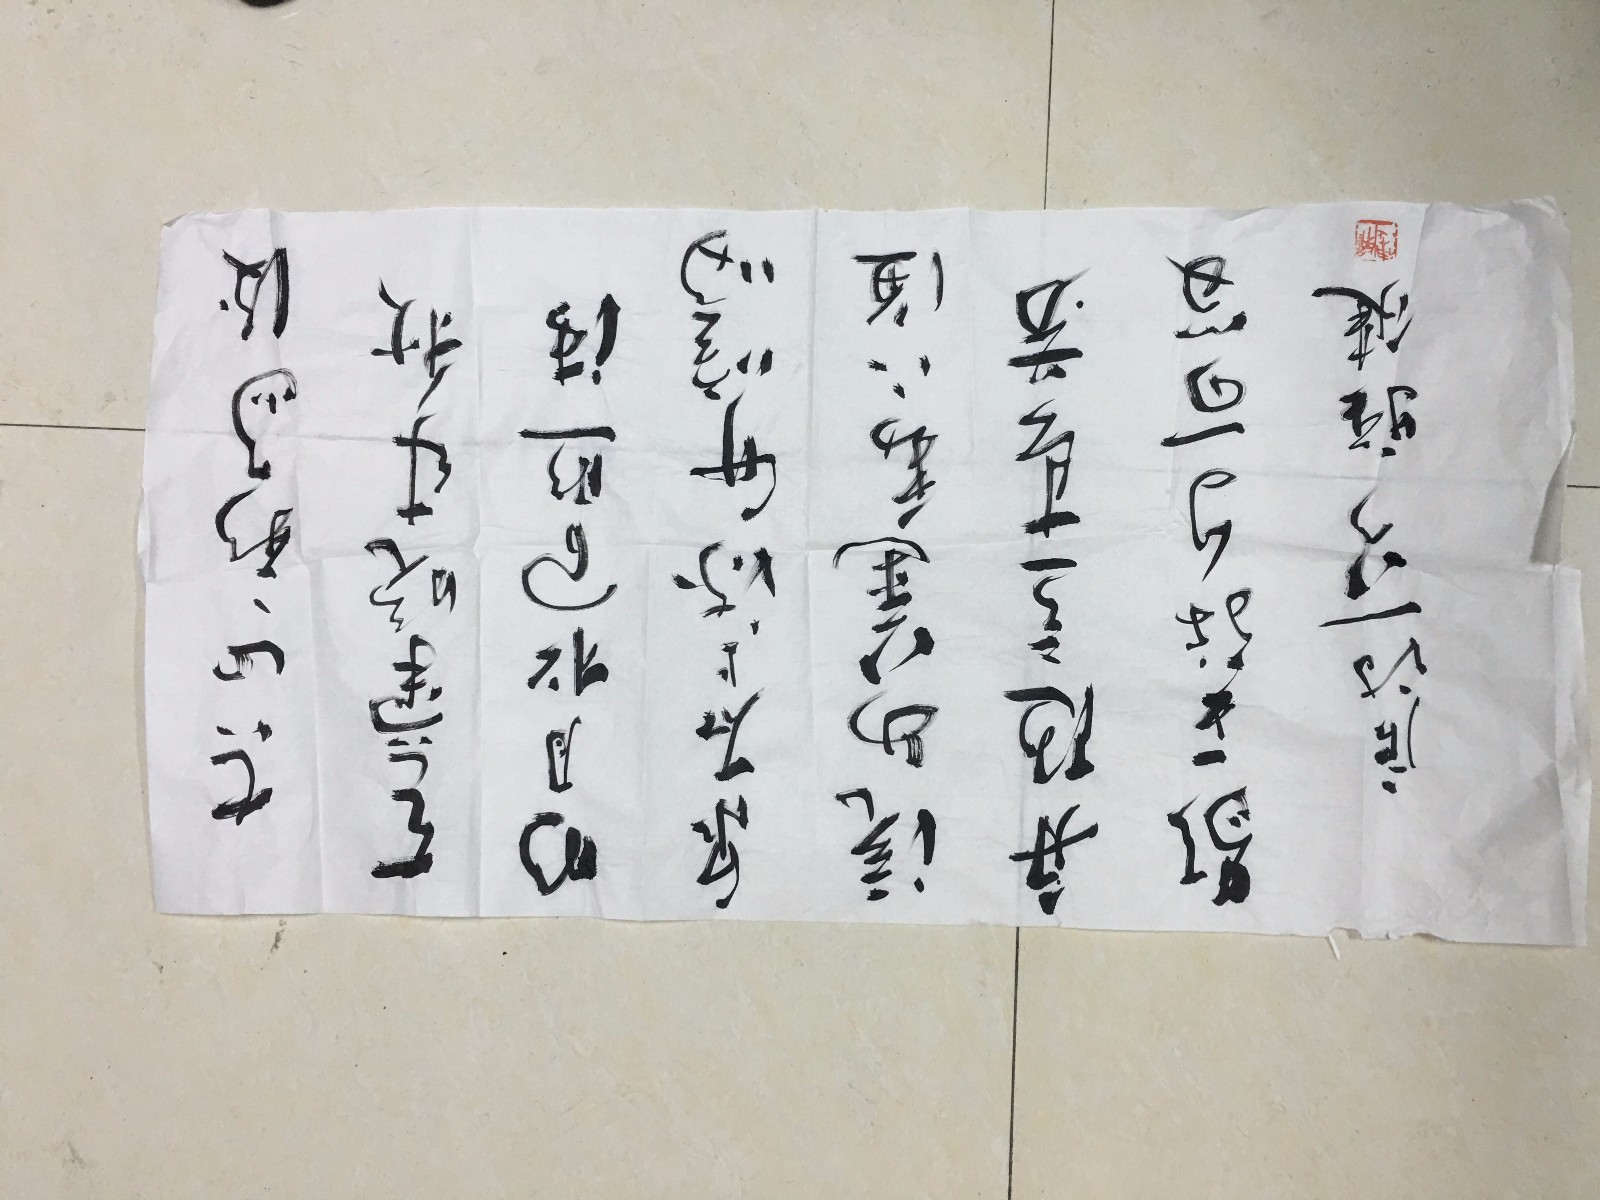 空山新雨後
天氣晚来秋
明月松间照清
泉石上流竹喧归
浣女蓮動下漁
舟随意春芳
歇王孫自可留
唐诗一首 健